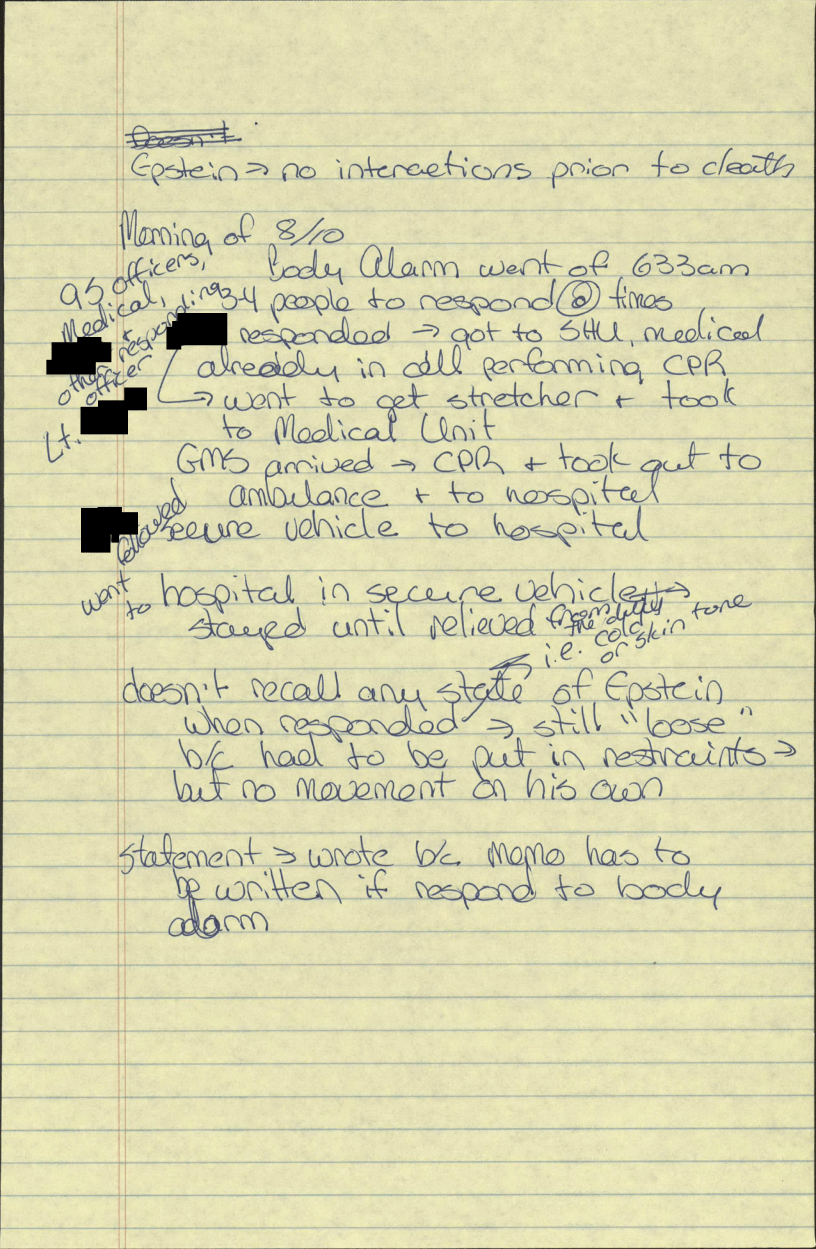 Doesn't
Epstein → no interactions prior to death
Morning of 8/10
Body Alarm went of 633am
3-4 people to respond @ times
95 officers,
Medical,
+
other responding
officer
Lt.
responded → got to SHU, medical
already in cell performing CPR
→ went to get stretcher + took
to Medical Unit
EMS arrived → CPR + took out to
ambulance + to hospital
followed
secure vehicle to hospital
went
to hospital in secure vehicle →
stayed until relieved
from
the
i.e. cold
or skin tone
doesn't recall any state of Epstein
when responded → still "loose"
b/c had to be put in restraints →
but no movement on his own
statement → wrote b/c memo has to
be written if respond to body
alarm